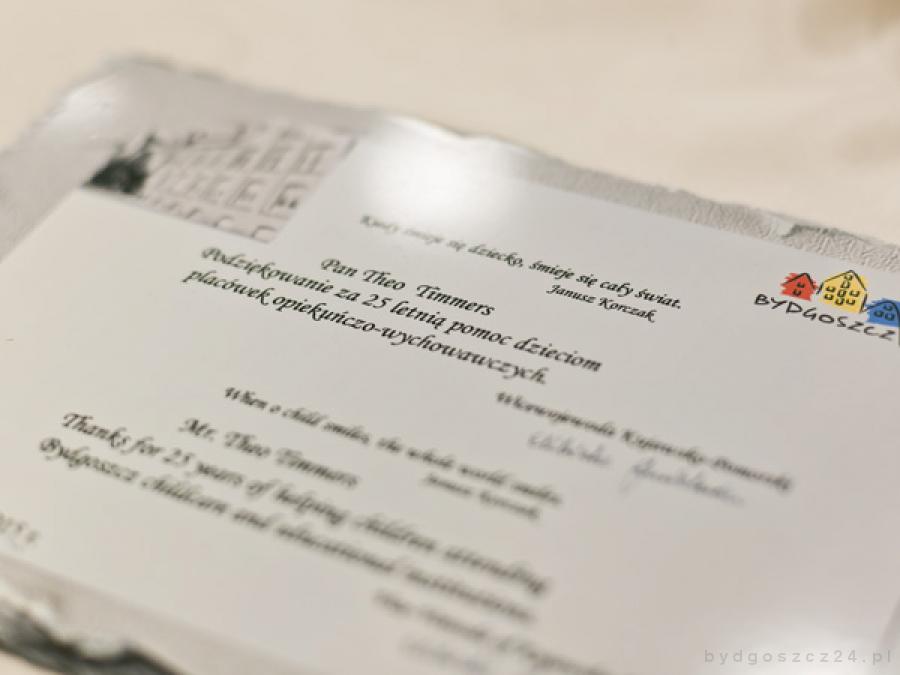 Kiedy śmieje się dziecko, śmieje się cały świat.
Janusz Korczak
BYDGOSZCZ
Pan Theo Timmers
Podziękowanie za 25 letnią pomoc dzieciom
placówek opiekuńczo-wychowawczych.
Wicewojewoda Kujawsko-Pomorski
When a child smiles, the whole world smiles.
Janusz Korczak
Mr. Theo Timmers
Thanks for 25 years of helping children attending
Bydgoszcz childcare and educational institutions.
bydgoszcz24.pl